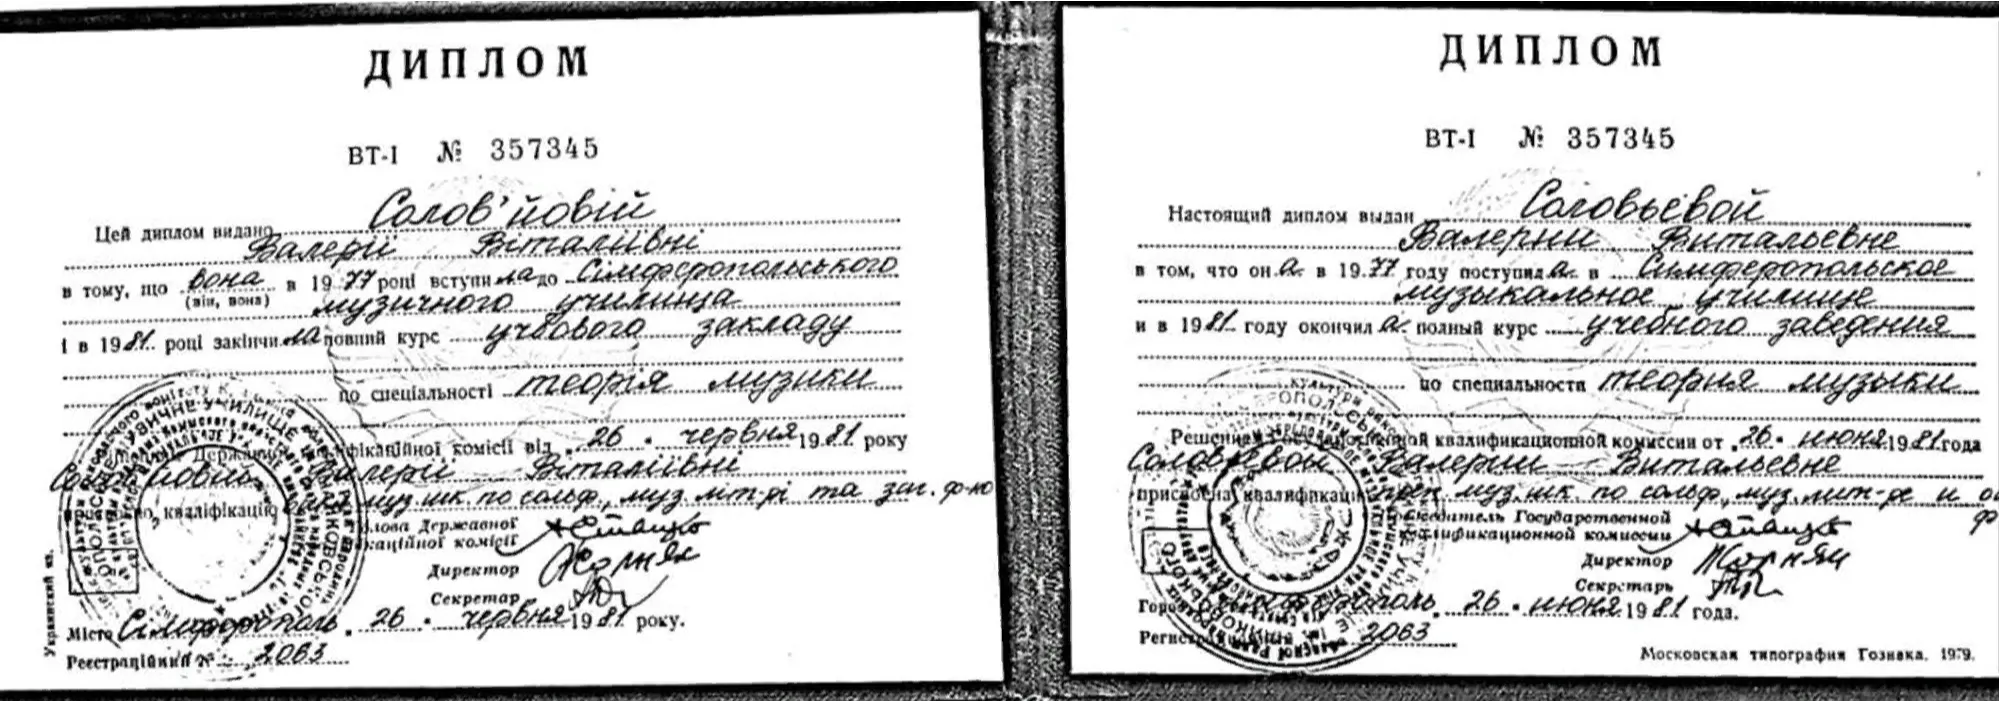 ДИПЛОМ
ВТ-I № 357345
Солов'йовій
Цей диплом видано
Валерії Віталіївні
в тому, що вона в 1977 році вступила до Сімферопольського
(він, вона)
музичного училища
і в 1981 році закінчила повний курс учбового закладу
по спеціальності теорія музики
Державної кваліфікаційної комісії від 26 червня 1981 року
Солов'йовій Валерії Віталіївні
муз. шк по сольф, муз. літ-рі та заг. ф-но
кваліфікацію
Голова Державної
кваліфікаційної комісії
Директор
Секретар
Місто Сімферополь 26 червня 1981 року.
Реєстраційний № 2063
Украинский яз.
ДИПЛОМ
ВТ-I № 357345
Настоящий диплом выдан Соловьевой
Валерии Витальевне
в том, что она в 1977 году поступила в Симферопольское
музыкальное училище
и в 1981 году окончила полный курс учебного заведения
по специальности теория музыки
Решением Государственной квалификационной комиссии от 26 июня 1981 года
Соловьевой Валерии Витальевне
присвоена квалификация преп. муз. шк. по сольф, муз. лит-ре и
Председатель Государственной
квалификационной комиссии
Директор
Секретарь
Город Симферополь 26 июня 1981 года.
Регистрационный № 2063
Московская типография Гознака. 1979.